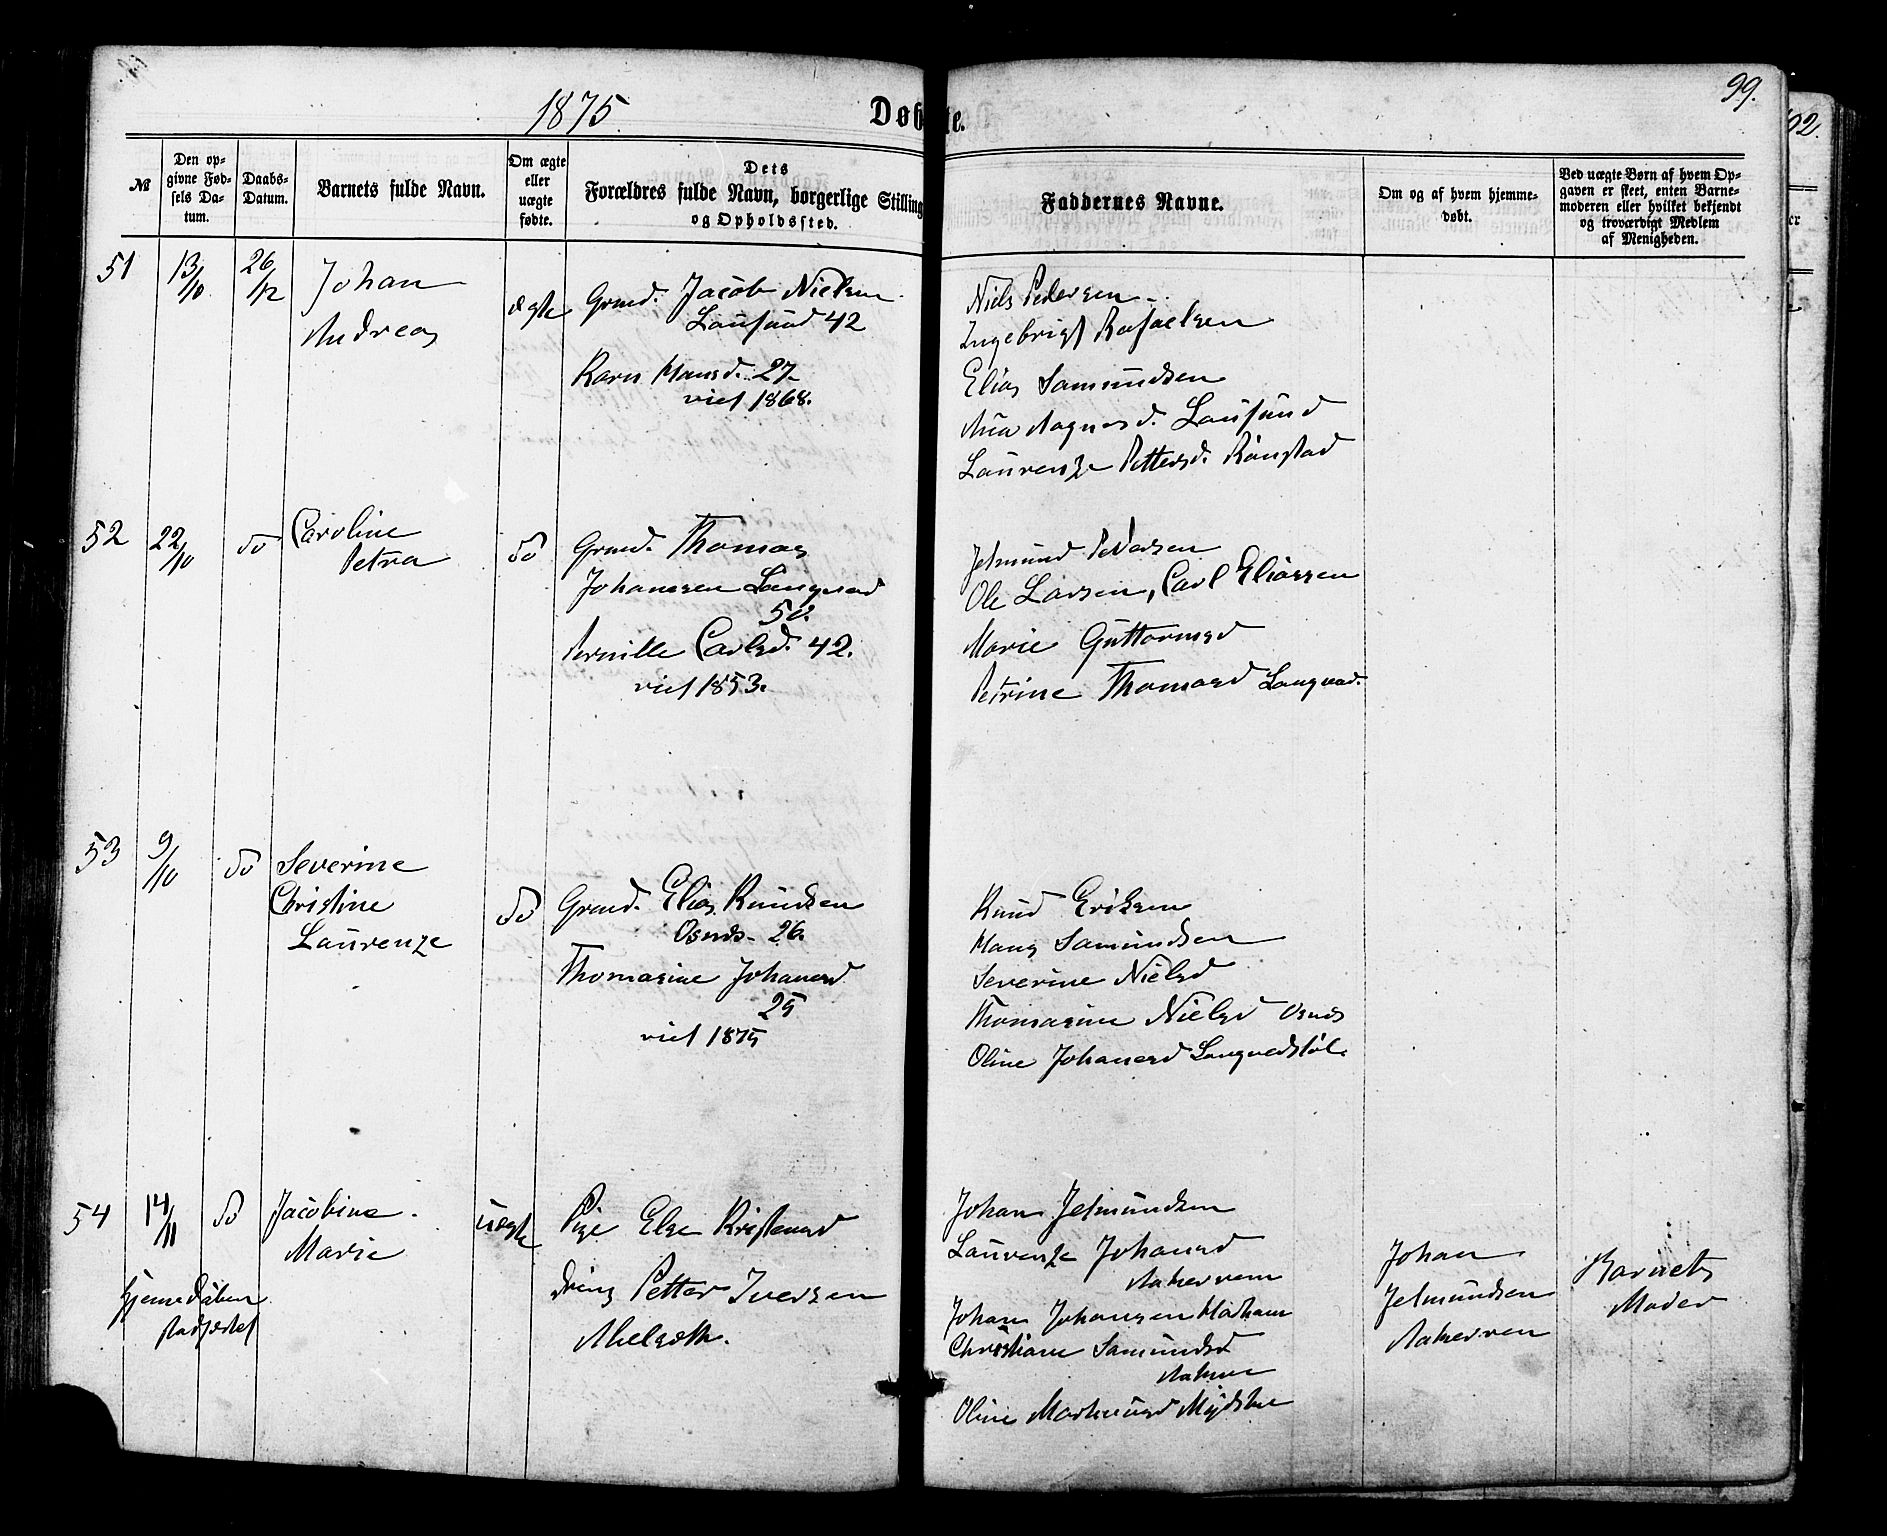 1875.
Døbte.
99.
102.
№
Den opgivne Fødsels Datum.
Daabs-Datum.
Barnets fulde Navn.
Om ægte eller uægte fødte.
Dets Forældres fulde Navn, borgerlige Stilling og Opholdssted.
Faddernes Navne.
Om og af hvem hjemmedøbt.
Ved uægte Børn af hvem Opgaven er skeet, enten Barnemoderen eller hvilket bekjendt og troværdigt Medlem af Menigheden.
51
13/10
26/12
Johan
Andreas
ægte
Grmd. Jacob Nielsen
Lausund 42
Karn Hansd. 27
viet 1868.
Niels Pedersen
Ingebrigt Rafaelsen
Elias Samundsen
Ana Aagnesd. Lausund
Laurenze Pettersd. Rønstad
52
22/10
do
Caroline
Petra
do
Grmd. Thomas
Johansen Langvad
50.
Pernille Carlsd. 42.
viet 1853.
Jetmund Pedersen
Ole Larsen, Carl Eliassen
Marie Guttormsd
Petrine Thomasd Langvad.
53
9/10
do
Severine
Christine
Laurenze
do
Grmd. Elias Knudsen
Osnæs. 26.
Thomasine Johansd
25
viet 1875
Knud Eriksen
Hans Samundsen
Severine Nielsd
Thomasine Nielsd Osnæs
Oline Johansd Langvadstøl
54
14/11
do
Jacobine
Marie
uægte
Pige Else Kristensd
Dreng Petter Iversen
Johan Jetmundsen
Laurenze Johansd
Aakervem
Johan Johansen
Christiane Samundsd
Oline
Johan
Jetmundsen
Barnets
Moder
Hjemmedåben
stadfæstet